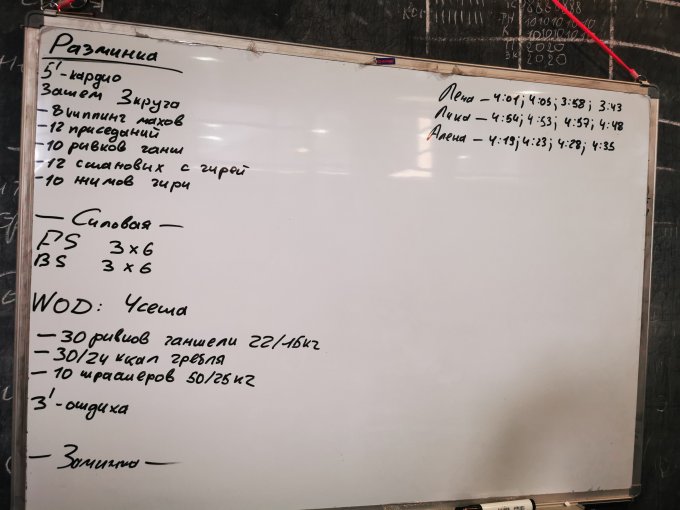 Разминка
5'-кардио
Затем 3 круга
- 8 киппинг махов
- 12 приседаний
- 10 рывков гант
- 12 становых с гирей
- 10 жимов гири
— Силовая —
FS 3 x 6
BS 3 x 6
WOD: 4 сета
— 30 рывков гантели 22/16кг
— 30/24 ккал гребля
— 10 трастеров 50/25кг
3'-отдыха
— Заминка —
Лена — 4:01; 4:05; 3:58; 3:43
Лика — 4:54; 4:53; 4:57; 4:48
Алена — 4:19; 4:23; 4:28; 4:35